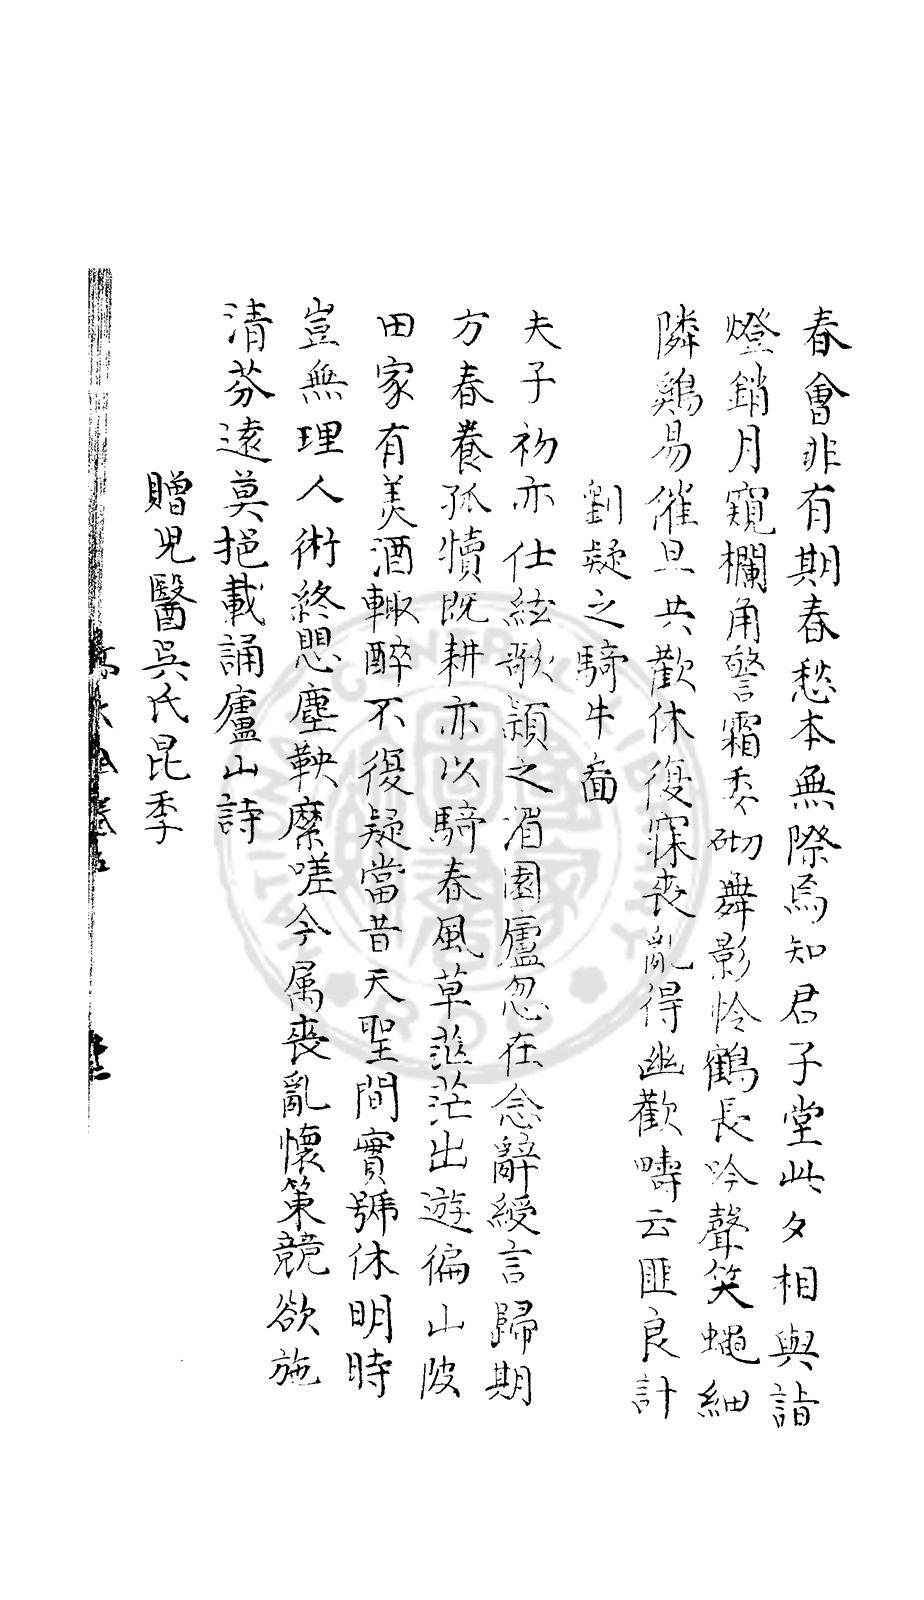 春會非有期春愁本無際焉知君子堂此夕相與詣
燈銷月窺欄角警霜委砌舞影怜鶴長吟聲笑蠅細
隣鷄易催旦共歡休復寐喪亂得幽歡疇云匪良計
劉凝之騎牛啚
夫子初亦仕絃歌潁之湄園廬忽在念辭綬言歸期
方春養孤犢既耕亦以騎春風草茫出遊徧山陂
田家有美酒輙醉不復疑當昔天聖間實號休明時
豈無理人術終愳塵鞅縻嗟今属喪亂懷策競欲施
清芬遠莫挹載誦廬山詩
贈兒醫吳氏昆季